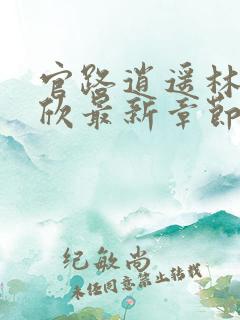 官路逍遥林
欣最新章节
纪敏尚
未经同意禁止转载